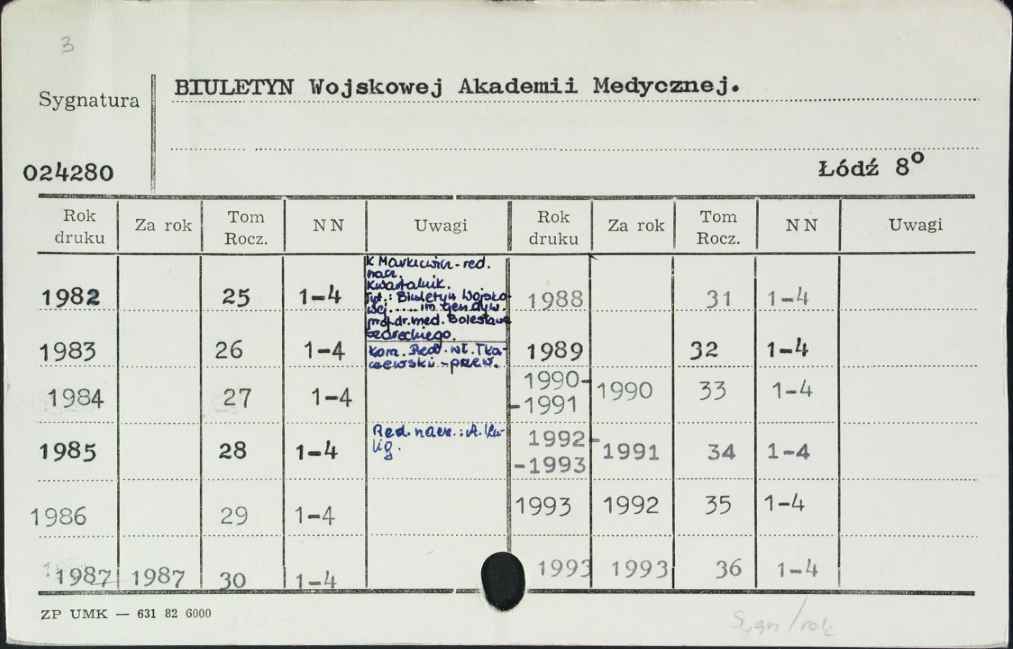 3
Sygnatura
BIULETYN Wojskowej Akademii Medycznej.
024280
Łódź 8°
Rok druku Za rok Tom Rocz. NN Uwagi Rok druku Za rok Tom Rocz. NN Uwagi
1982 25 1-4 K Markiewicz - red. nacz. Kwartalnik. Tyt.: Biuletyn Wojsko-wej ..... im gen dyw. prof. dr. med. Bolesława Szareckiego.
1983 26 1-4 Kom. Red. Wł. Tka-czewski - przew.
1984 27 1-4
1985 28 1-4 Red. nacz.: A. Ku-lig.
1986 29 1-4
1987 1987 30 1-4
1988 31 1-4
1989 32 1-4
1990-
-1991 1990 33 1-4
1992-
-1993 1991 34 1-4
1993 1992 35 1-4
1993 1993 36 1-4
ZP UMK — 631 82 6000
Sygn / rok